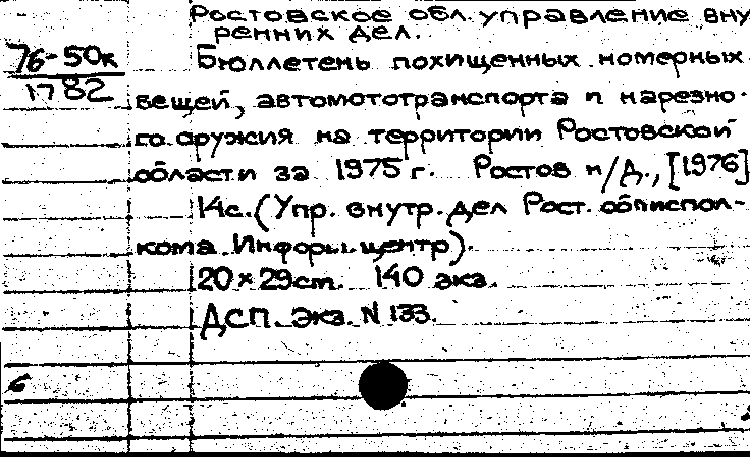 Ростовское обл. управление вну
ренних дел.
76-50к
1782
Бюллетень похищенных номерных
вещей, автомототранспорта и нарезно-
го оружия на территории Ростовской
области за 1975 г. Ростов н/Д., [1976]
14с. (Упр. внутр. дел Рост. облиспол-
кома. Информ. центр).
20×29см. 140 экз.
ДСП. Экз. N 133.
6